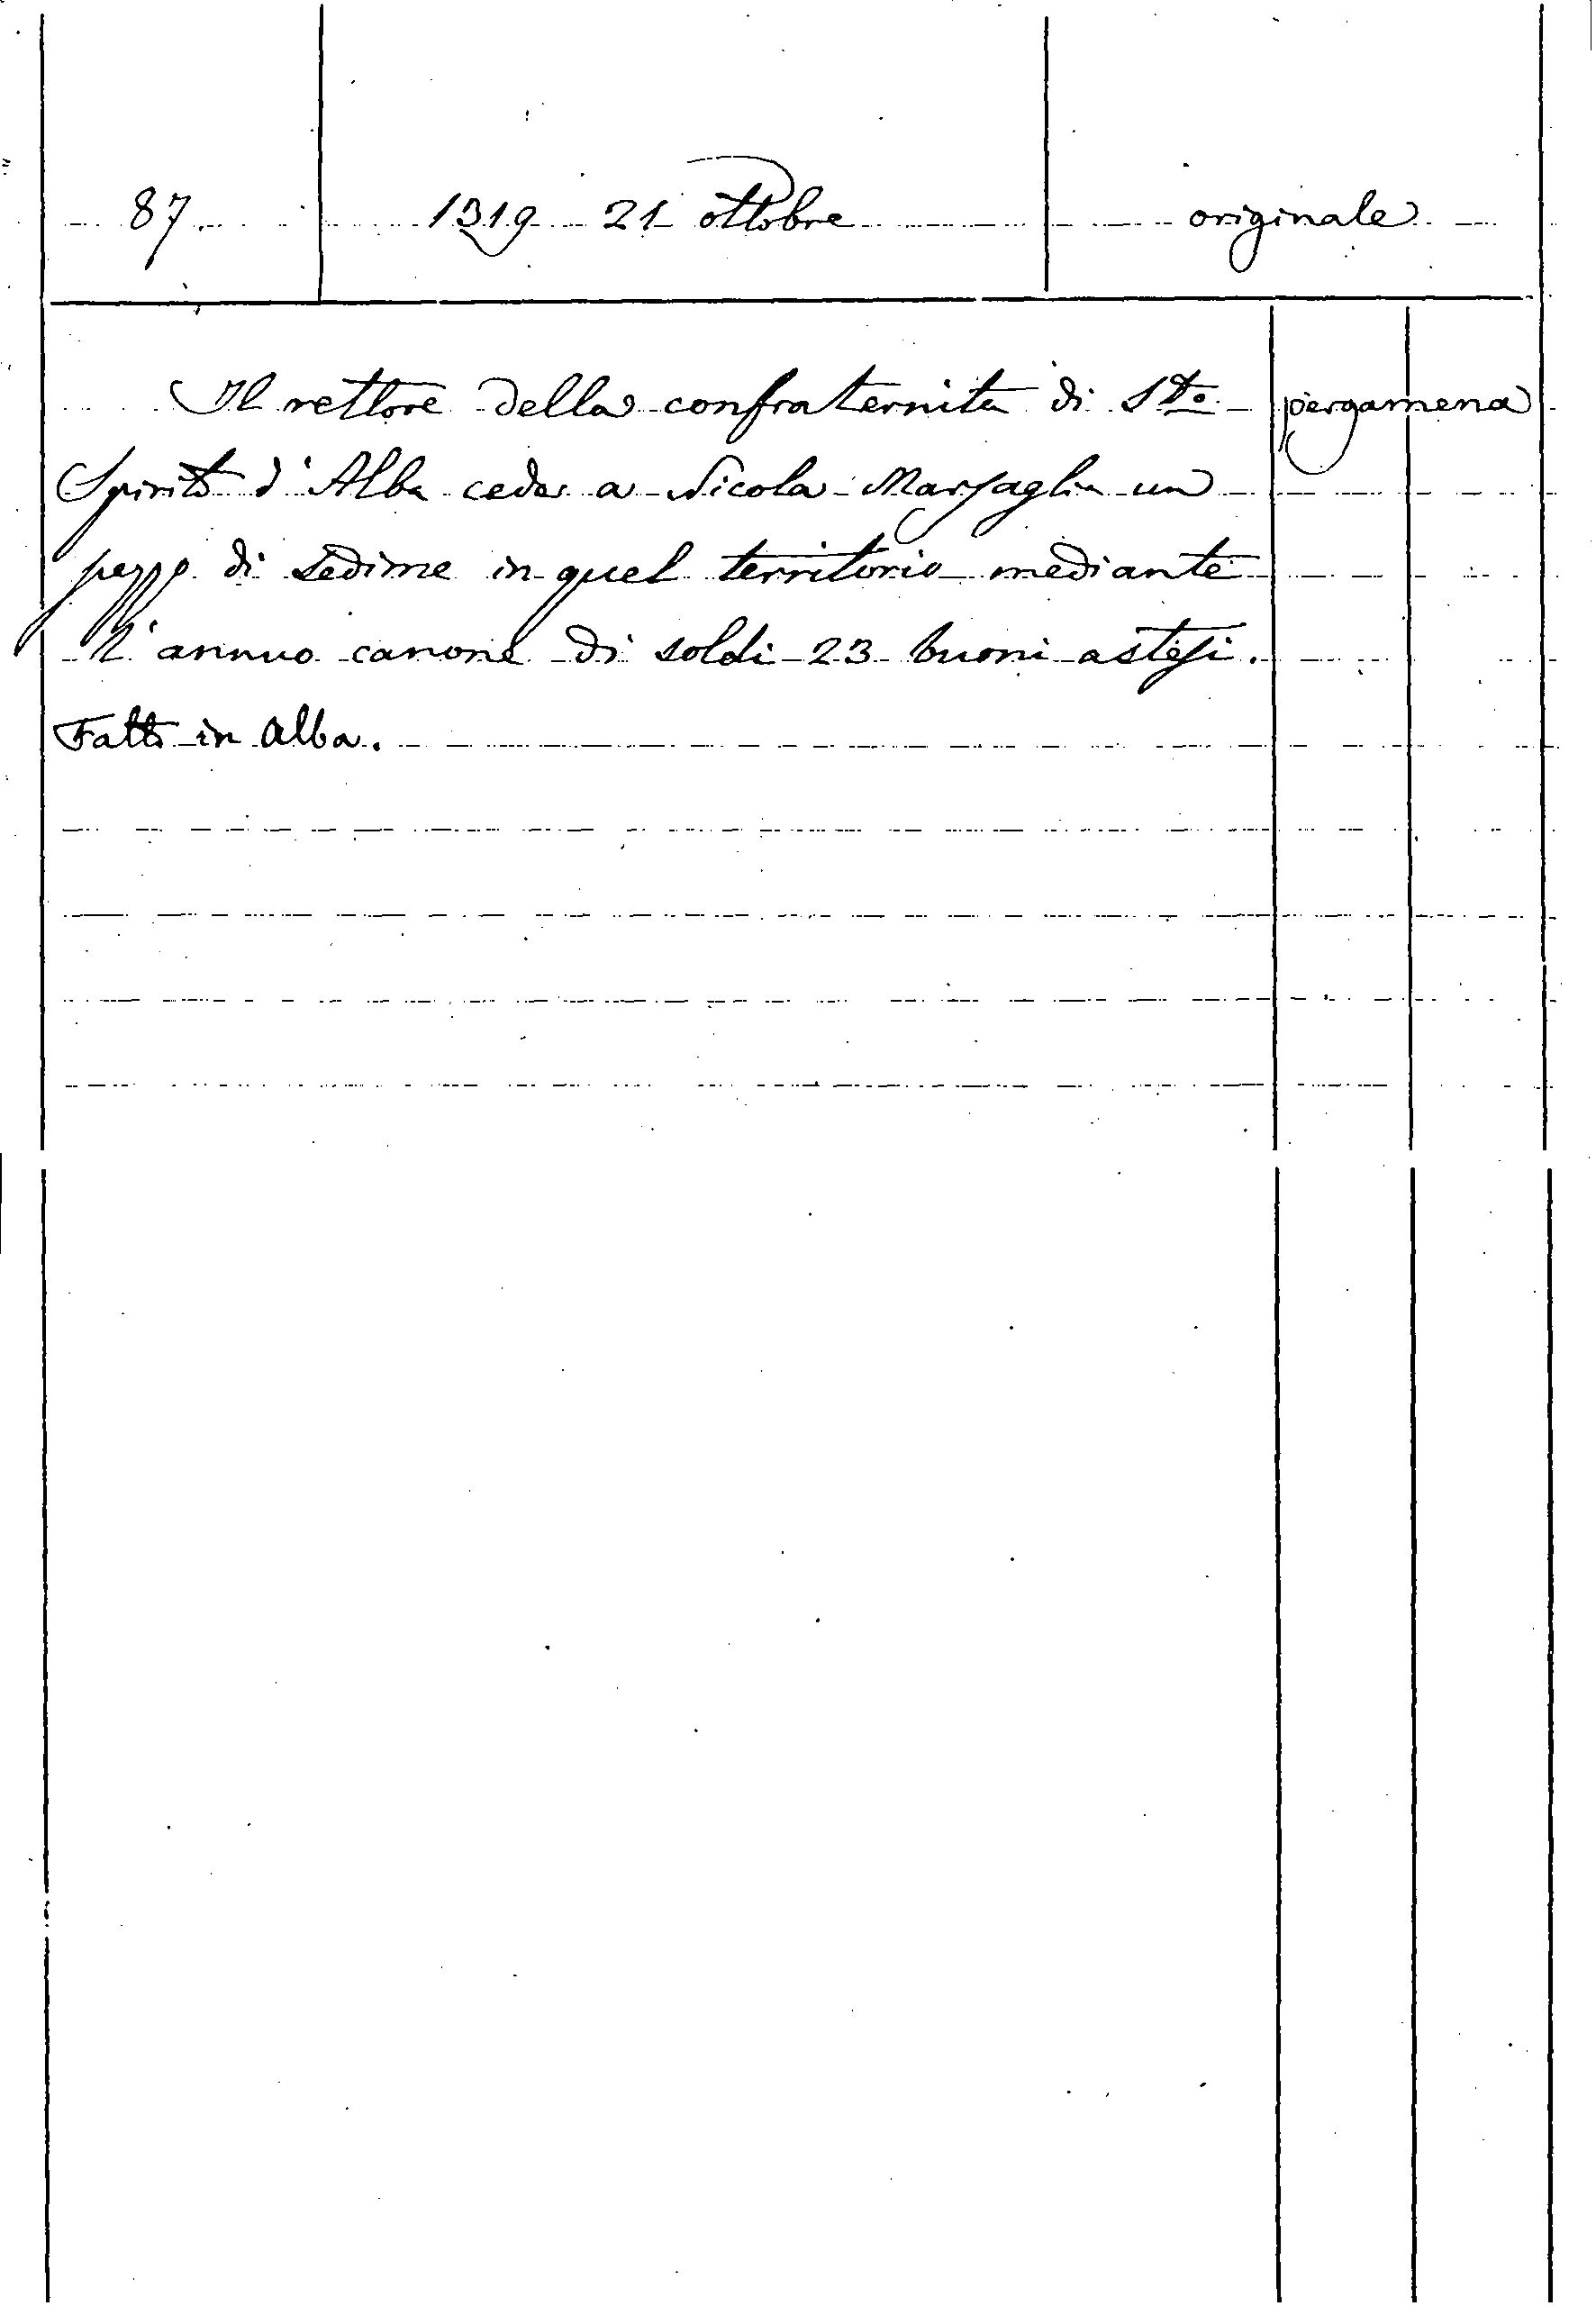 87 1319 21 ottobre originale
Il rettore della confraternita di Sto pergamena
Spirito d'Alba cede a Nicola Marsaglia un
pezzo di sedime in quel territorio mediante
l'annuo canone di soldi 23 buoni astesi.
Fatto in Alba.